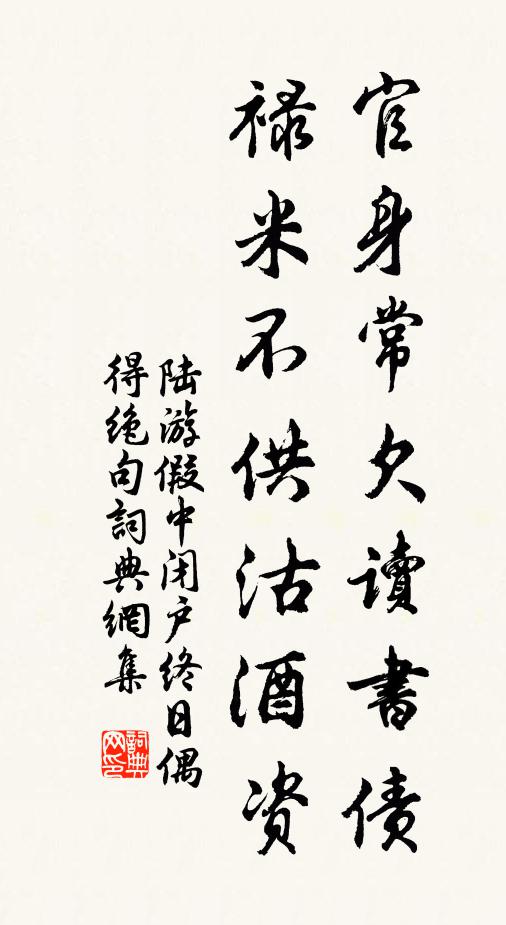 官身常欠讀書債
禄米不供沽酒资
陆游假中闭户终日偶
得绝句詞典網集
詞典
网印